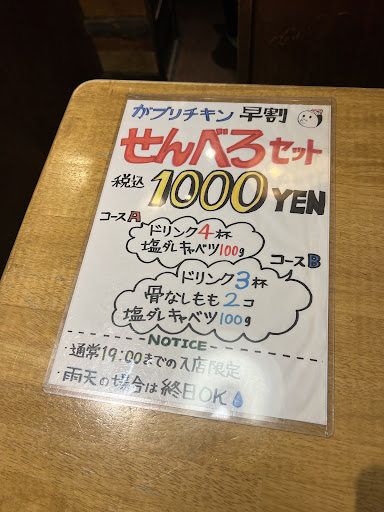 ガブリチキン 早割
せんべろセット
税込 1000 YEN
コースA
ドリンク4杯
塩ダレキャベツ100g
コースB
ドリンク3杯
骨なしもも2コ
塩ダレキャベツ100g
NOTICE
・通常19:00までの入店限定
・雨天の場合は終日OK